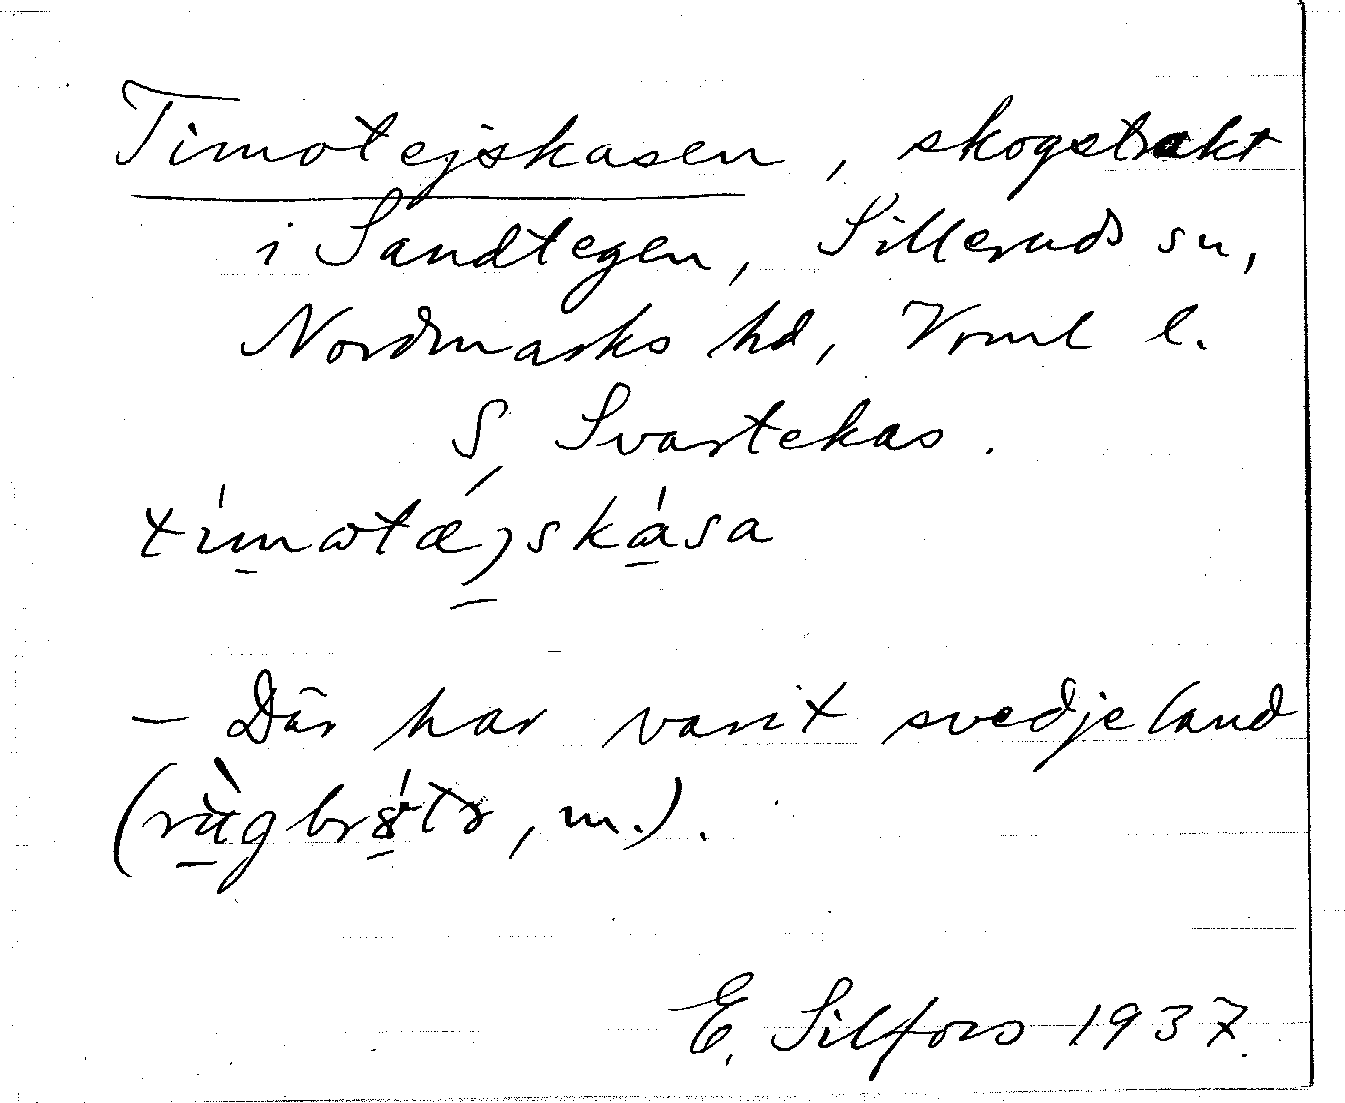 Timotejskasen, skogstrakt
i Sandtegen, Silleruds sn,
Nordmarks hd, Vrml l.
S, Svartekas.
timotæjskása
— Där har varit svedjeland
(, m.).
E. Silfors 1937.